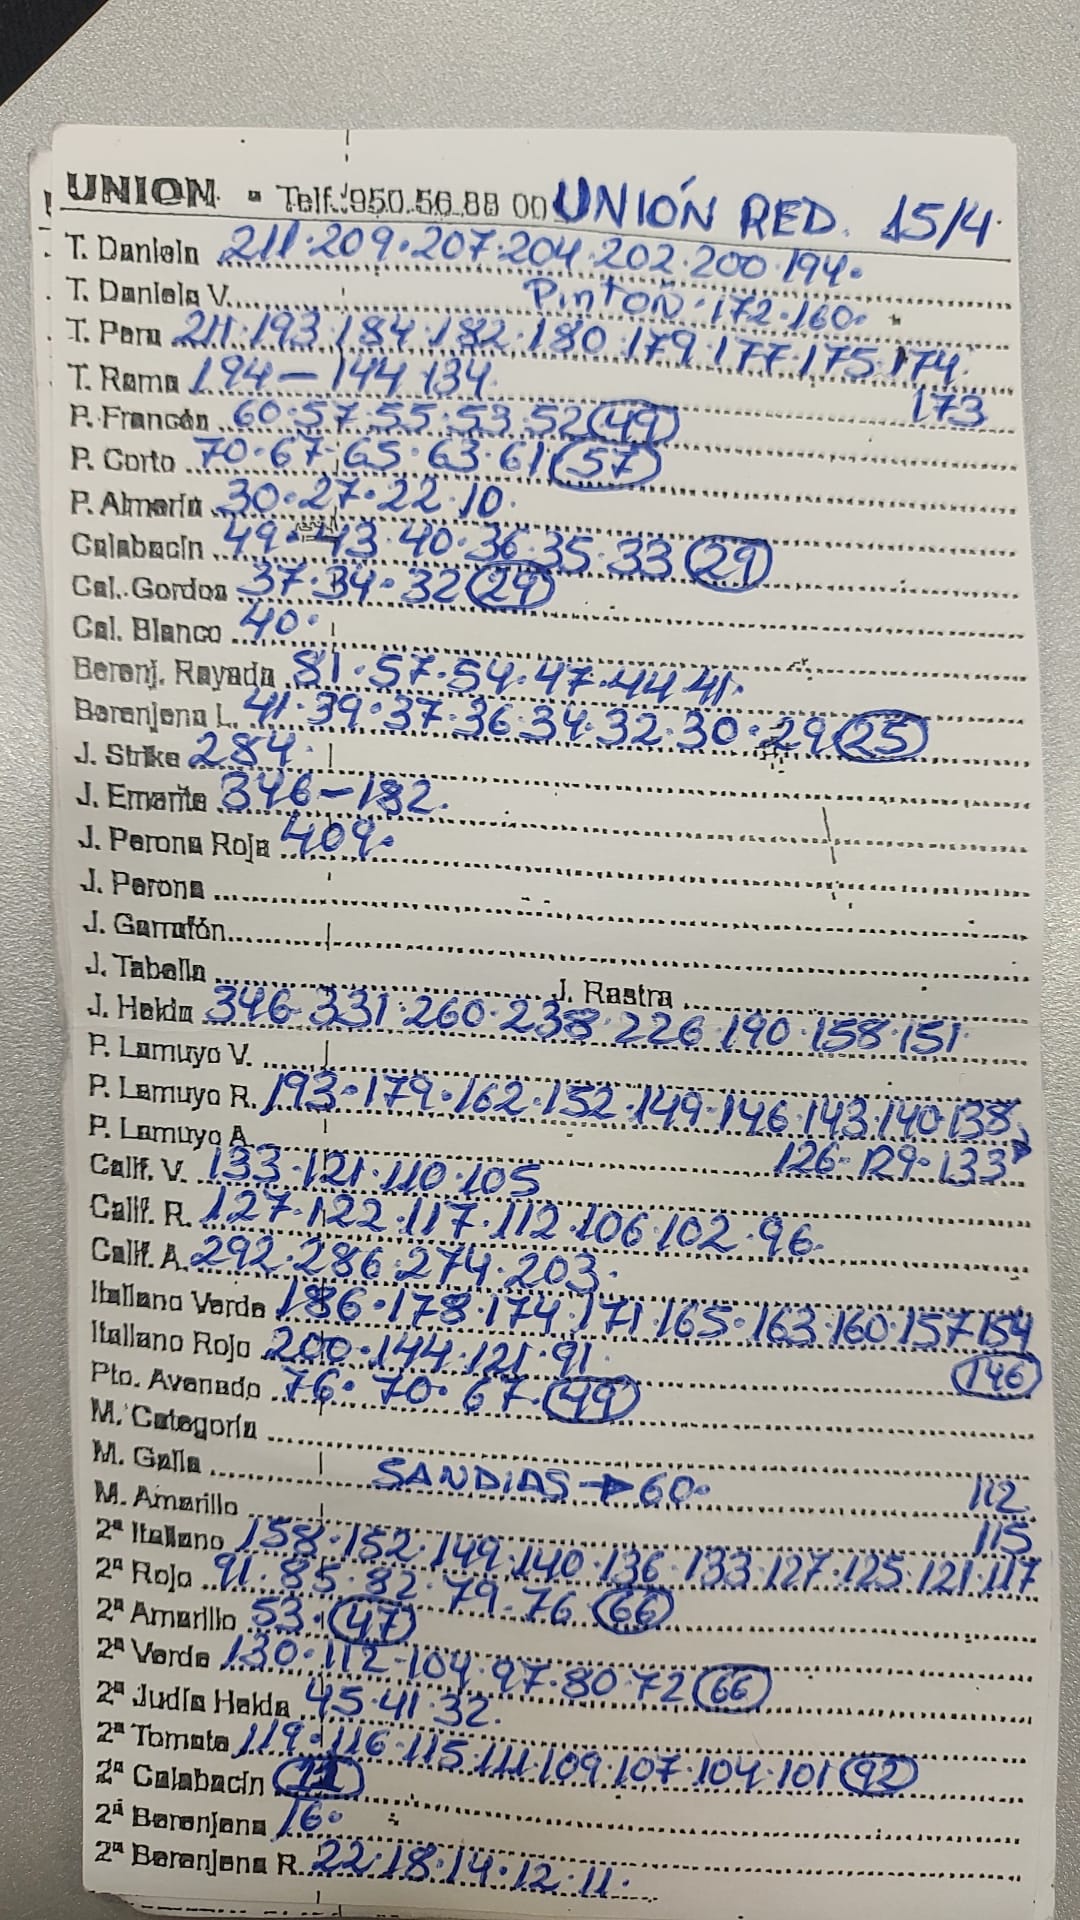 UNION - Telf. 950.56.88 00 UNIÓN RED. 15/4
T. Daniela 211·209·207·204·202·200·194·
T. Daniela V. Pintón·172·160·
T. Pera 211·193·184·182·180·179·177·175·174·
173
T. Rama 194-144·134·
P. Francés 60·57·55·53·52 (49)
P. Corto 70·67·65·63·61 (57)
P. Almería 30·27·22·10·
Calabacín 49·43·40·36·35·33 (29)
Cal. Gordos 37·34·32 (29)
Cal. Blanco 40·
Berenj. Rayada 81·57·54·47·44·41·
Berenjena L. 41·39·37·36·34·32·30·29 (25)
J. Strike 284·
J. Emerite 346-182.
J. Perona Roja 409·
J. Perona
J. Garrafón
J. Tabella J. Rastra
J. Helda 346·331·260·238·226·190·158·151·
P. Lamuyo V.
P. Lamuyo R. 193·179·162·152·149·146·143·140·138
P. Lamuyo A. 126·129·133
Calif. V. 133·121·110·105
Calif. R. 127·122·117·112·106·102·96·
Calif. A. 292·286·274·203·
Italiano Verde 186·178·174·171·165·163·160·157·154
(146)
Italiano Rojo 200·144·121·91·
Pto. Asado 76·70·67·(49)
M. Categoría
M. Galia SANDIAS → 60· 112
M. Amarillo 115
2ª Italiano 158·152·149·140·136·133·127·125·121·117
2ª Rojo 91·85·82·79·76 (66)
2ª Amarillo 53·(47)
2ª Verde 130·112·104·97·80·72 (66)
2ª Judía Helda 45·41·32·
2ª Tomate 119·116·115·111·109·107·104·101 (92)
2ª Calabacín (11)
2ª Berenjena 16·
2ª Berenjena R. 22·18·14·12·11·